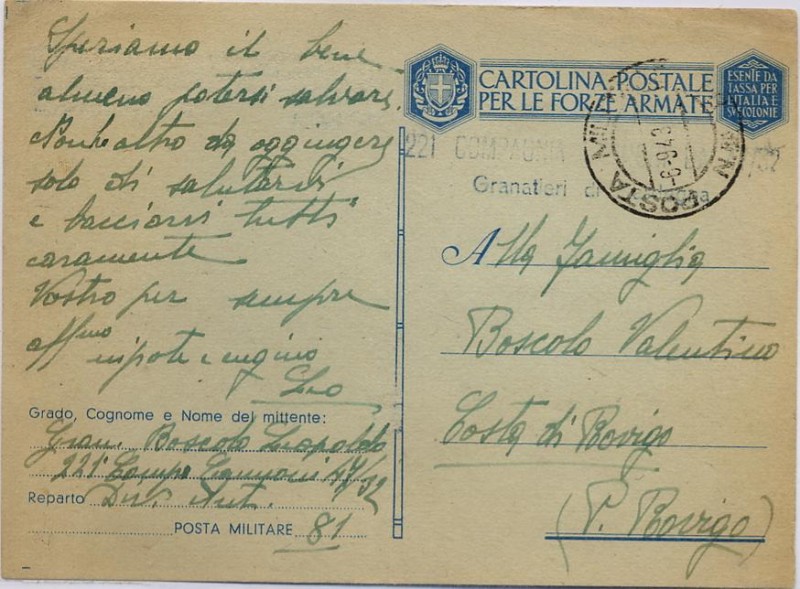 Speriamo il bene
almeno potersi salvare.
Nonhe altro da aggingere
solo di salutarvi
e bacciarvi tutti
caramente
Vostro per sempre
affmo nipote e cugino
Leo
Grado, Cognome e Nome del mittente:
Gran. Boscolo Leopoldo
221ª Comp. Cannoni 47/32
Reparto Div.
POSTA MILITARE 81
CARTOLINA POSTALE
PER LE FORZE ARMATE
ESENTE DA
TASSA PER
L'ITALIA E
SUE COLONIE
221 COMPAGNIA
Granatieri di
POSTA MILITARE N.
Alla Famiglia
Boscolo Valentino
Costa di Rovigo
(P. Rovigo)